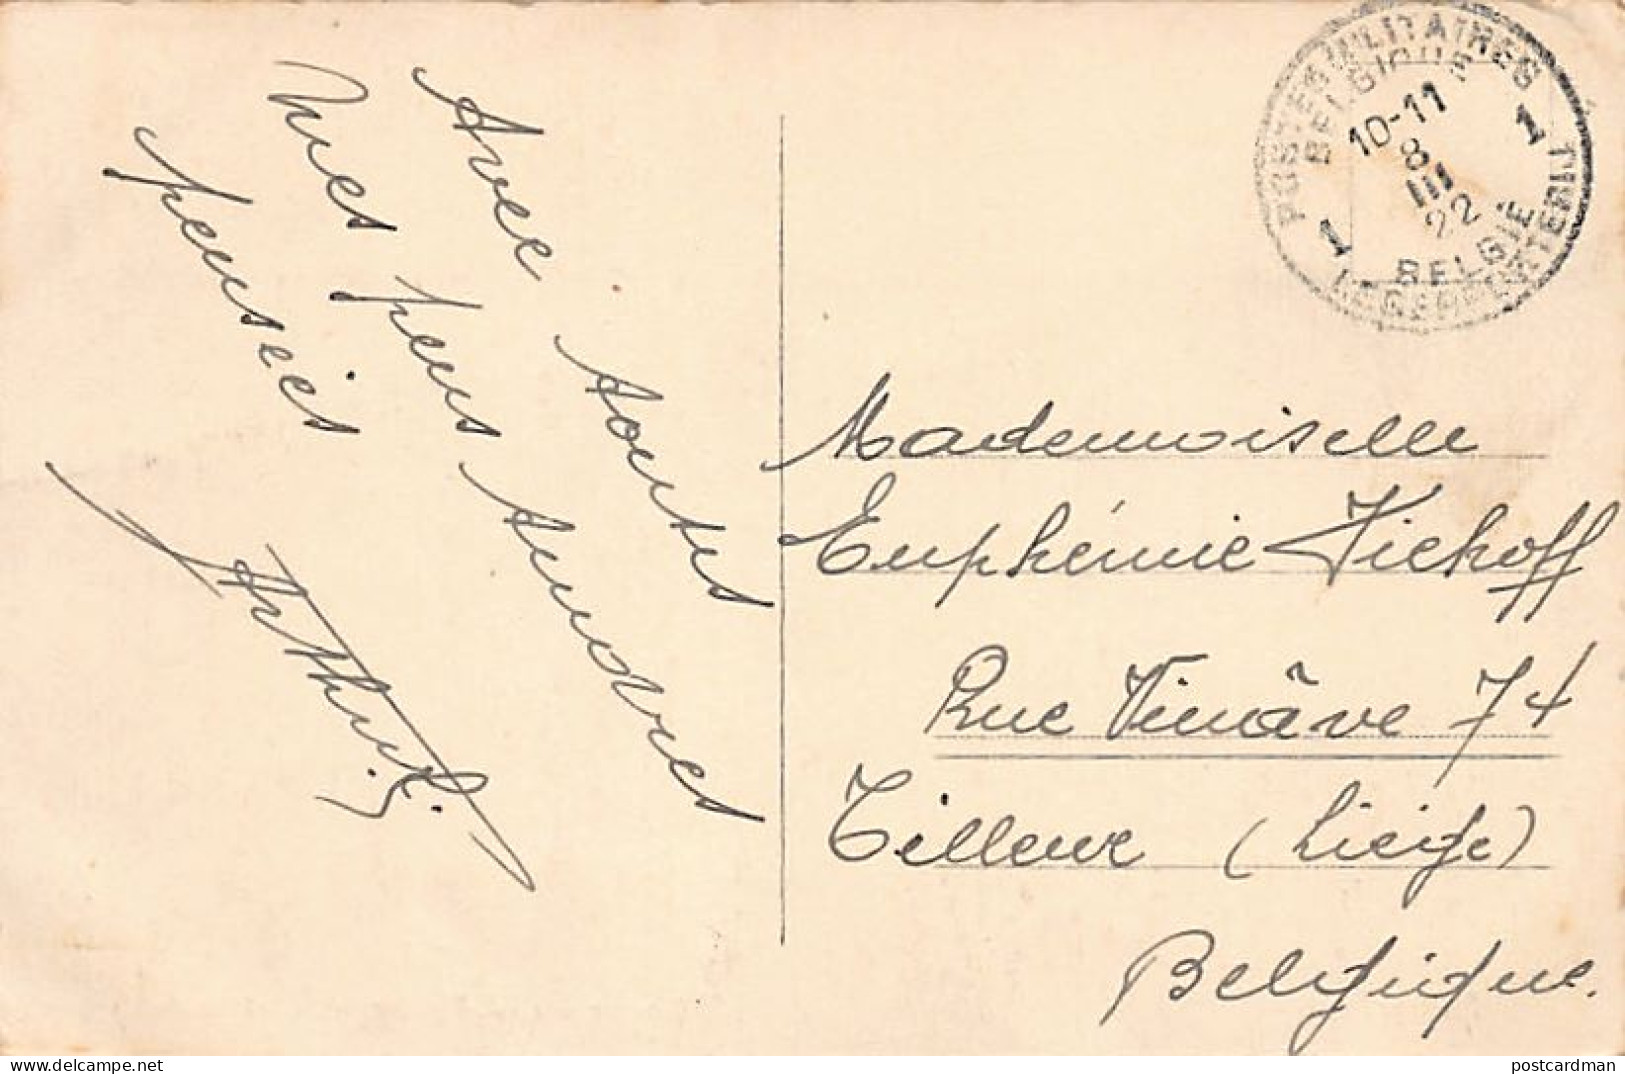 Avec toutes
mes plus tendres
pensées
Arthur.
POSTES MILITAIRES
BELGIQUE
10-11
8
III
22
1
1
BELGIË
LEGERPOSTERIJ
Mademoiselle
Euphémie Vickoff
Rue Vinâve 74
Tilleur (Liége)
Belgique.
delcampe.net
postcardman